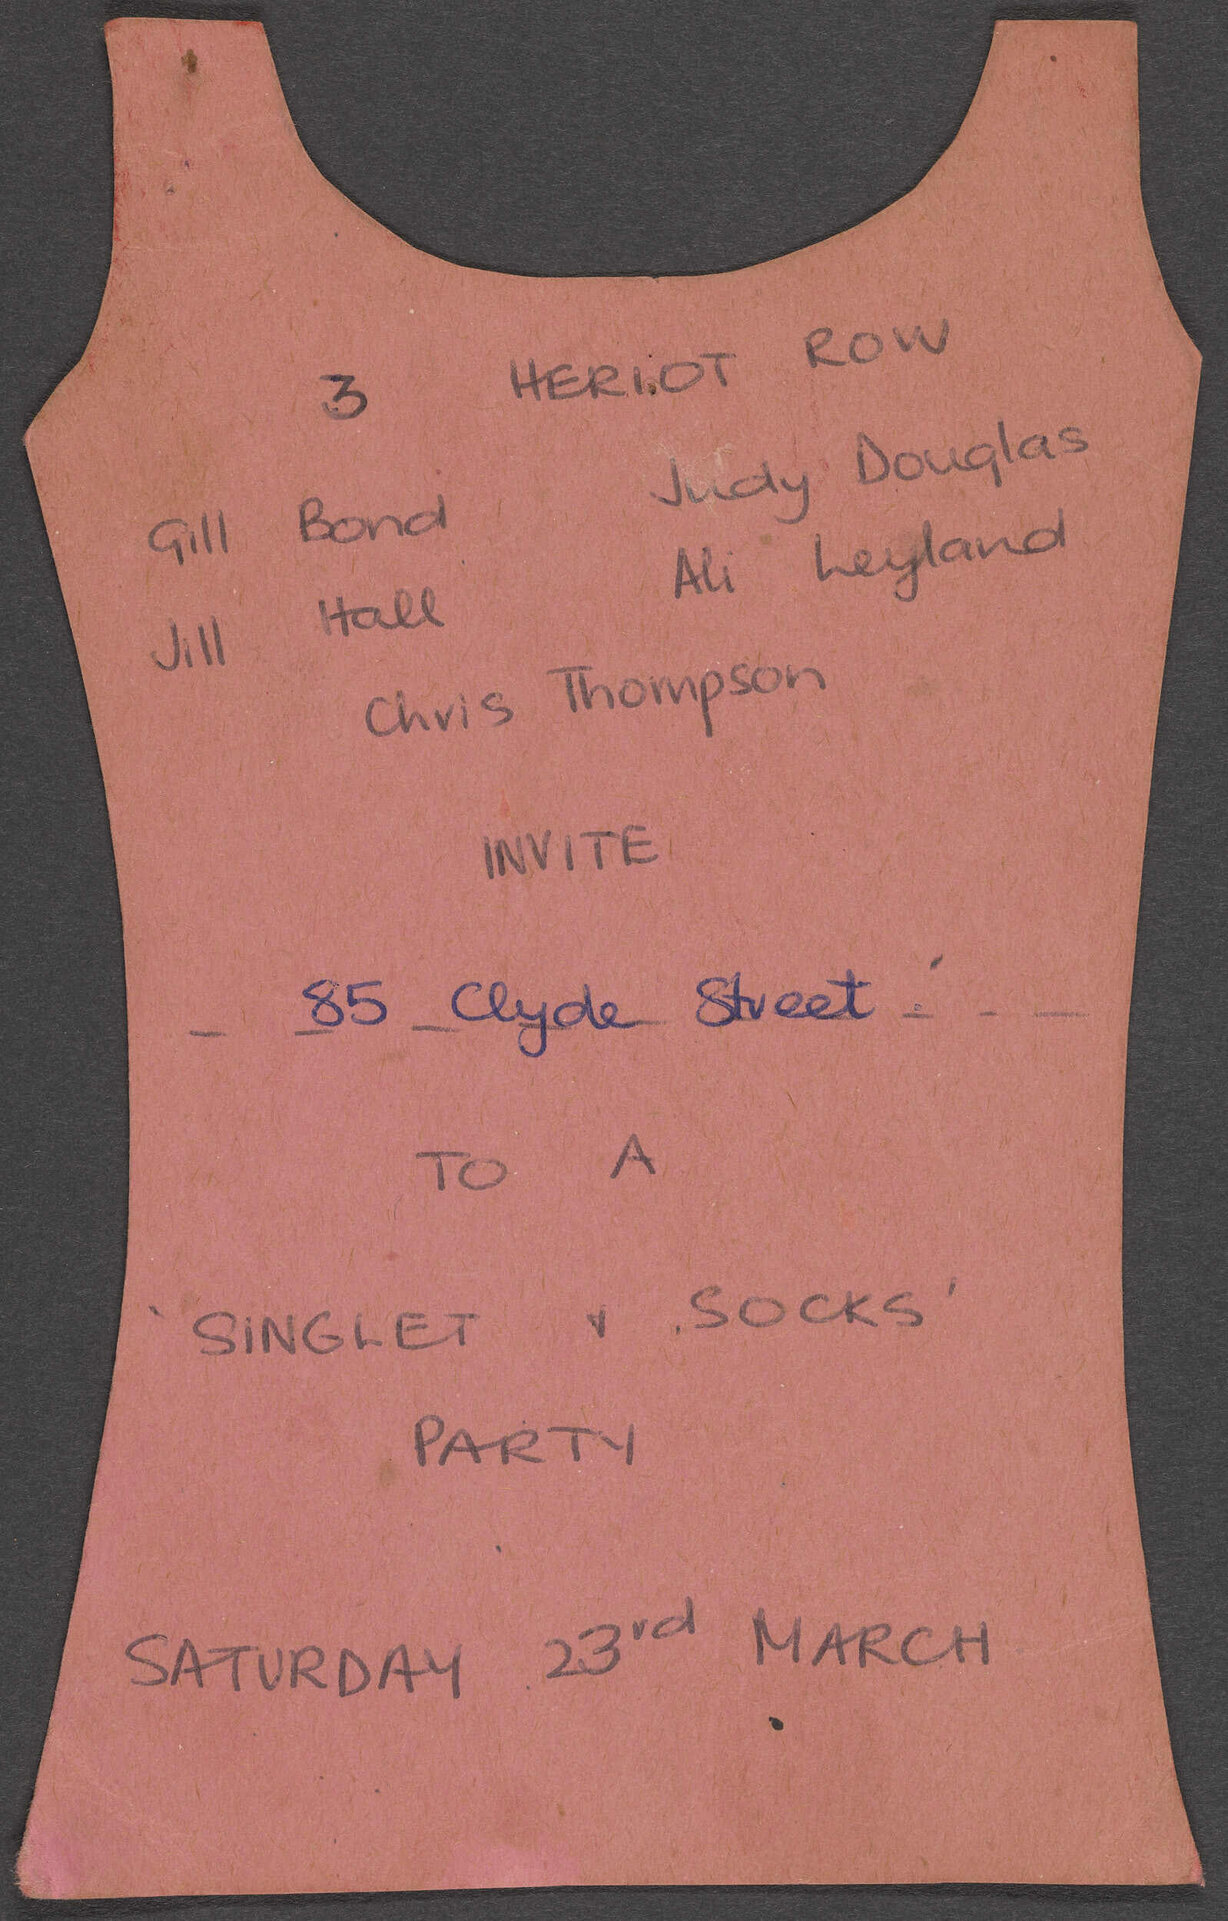 3 HERIOT ROW
Gill Bond Judy Douglas
Jill Hall Ali Leyland
Chris Thompson
INVITE
85 Clyde Street
TO A
'SINGLET & SOCKS'
PARTY
SATURDAY 23rd MARCH